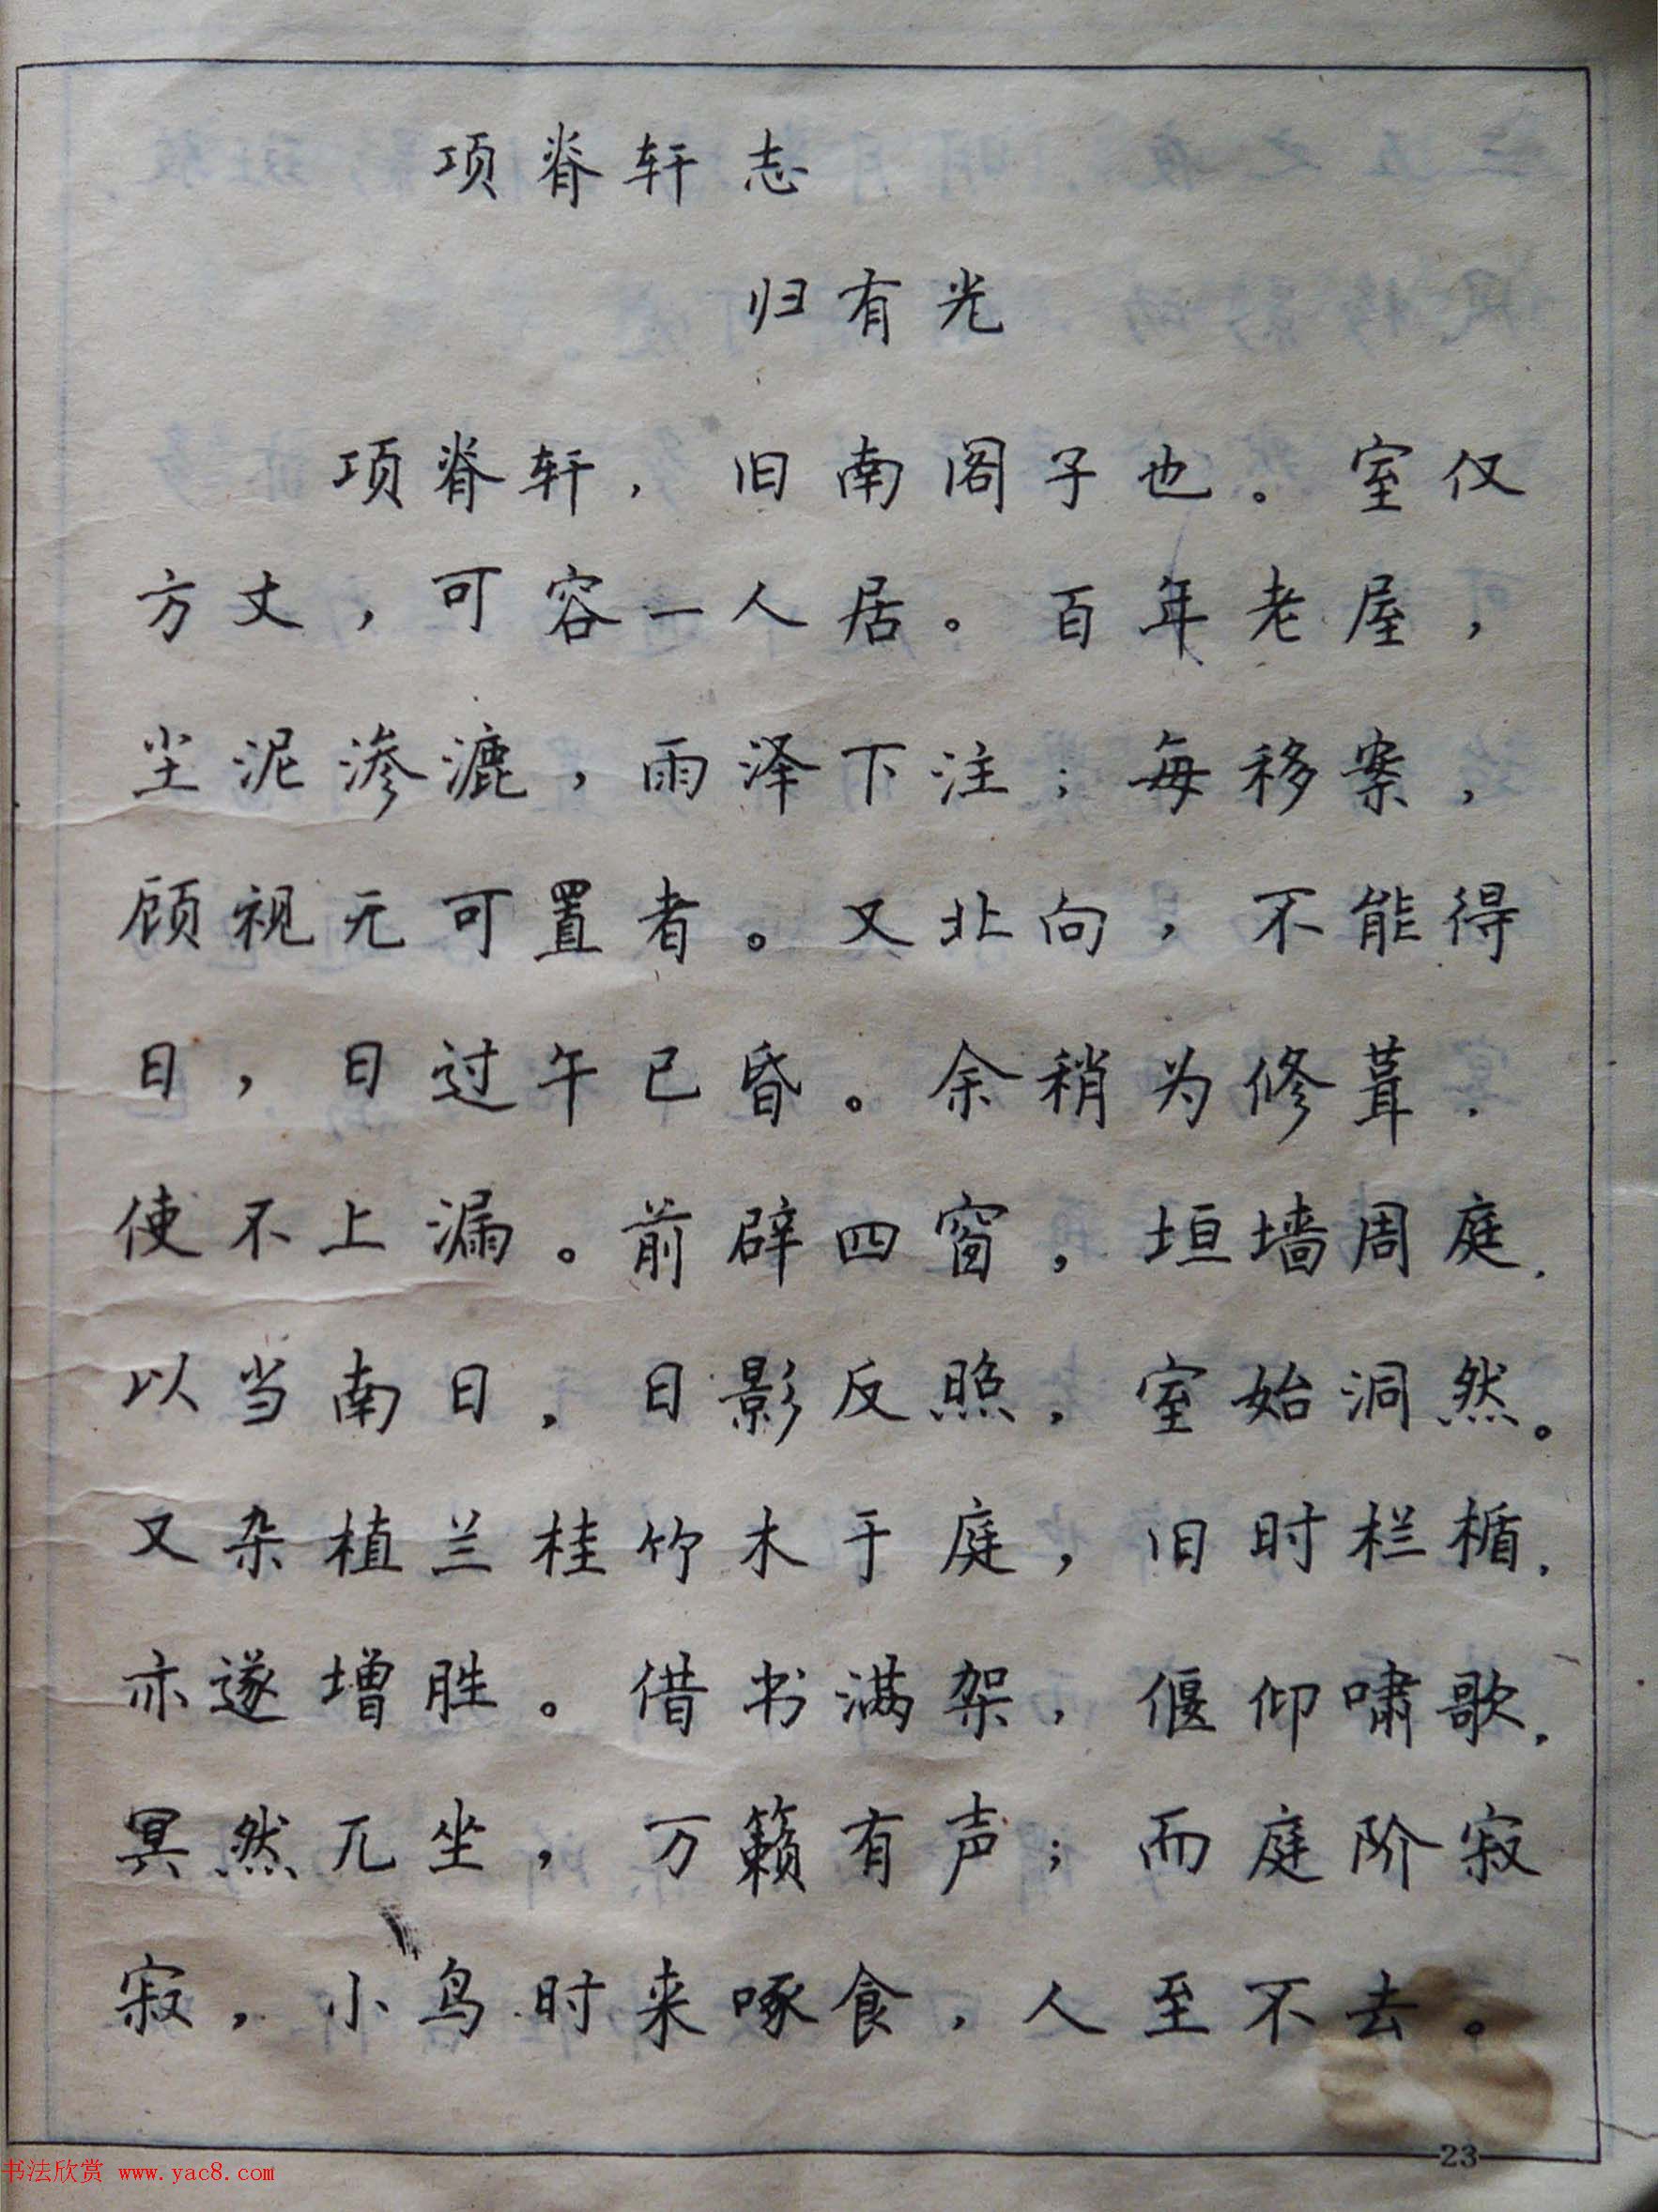 项脊轩志
归有光
项脊轩，旧南阁子也。室仅
方丈，可容一人居。百年老屋，
尘泥渗漉，雨泽下注；每移案，
顾视无可置者。又北向，不能得
日，日过午已昏。余稍为修葺.
使不上漏。前辟四窗，垣墙周庭.
以当南日，日影反照，室始洞然。
又杂植兰桂竹木于庭，旧时栏楯.
亦遂增胜。借书满架，偃仰啸歌.
冥然兀坐，万籁有声；而庭阶寂
寂，小鸟时来啄食，人至不去。
23
书法欣赏 www.yac8.com